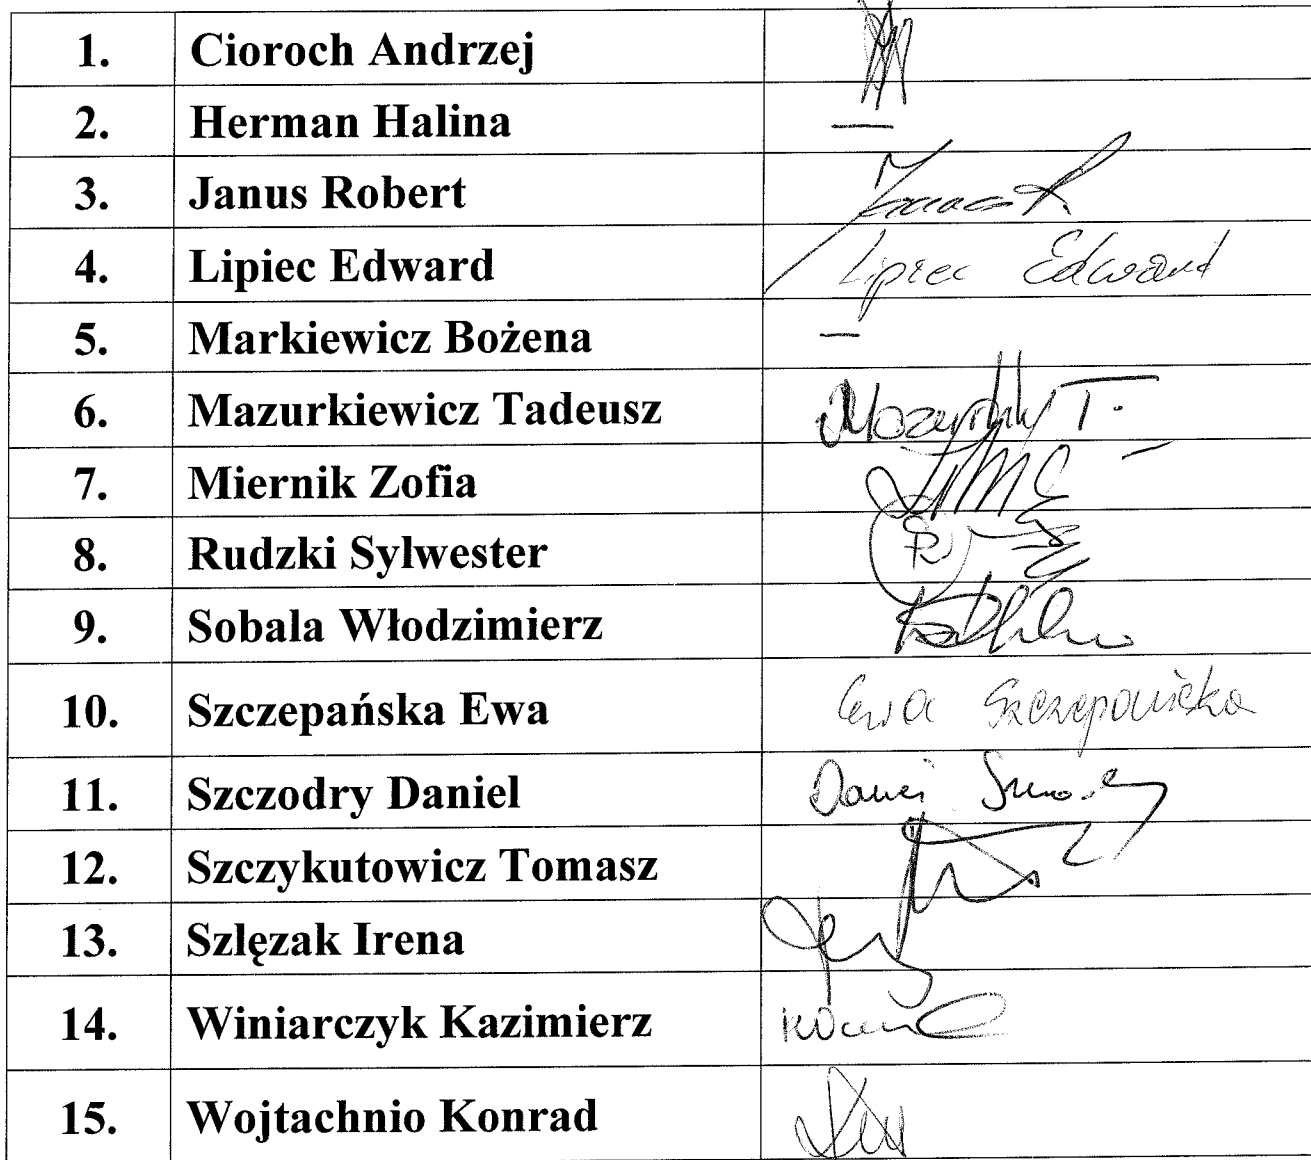 1. Cioroch Andrzej
2. Herman Halina —
3. Janus Robert
4. Lipiec Edward Lipiec Edward
5. Markiewicz Bożena —
6. Mazurkiewicz Tadeusz T.
7. Miernik Zofia
8. Rudzki Sylwester
9. Sobala Włodzimierz
10. Szczepańska Ewa Ewa Szczepańska
11. Szczodry Daniel Daniel
12. Szczykutowicz Tomasz
13. Szlęzak Irena
14. Winiarczyk Kazimierz
15. Wojtachnio Konrad